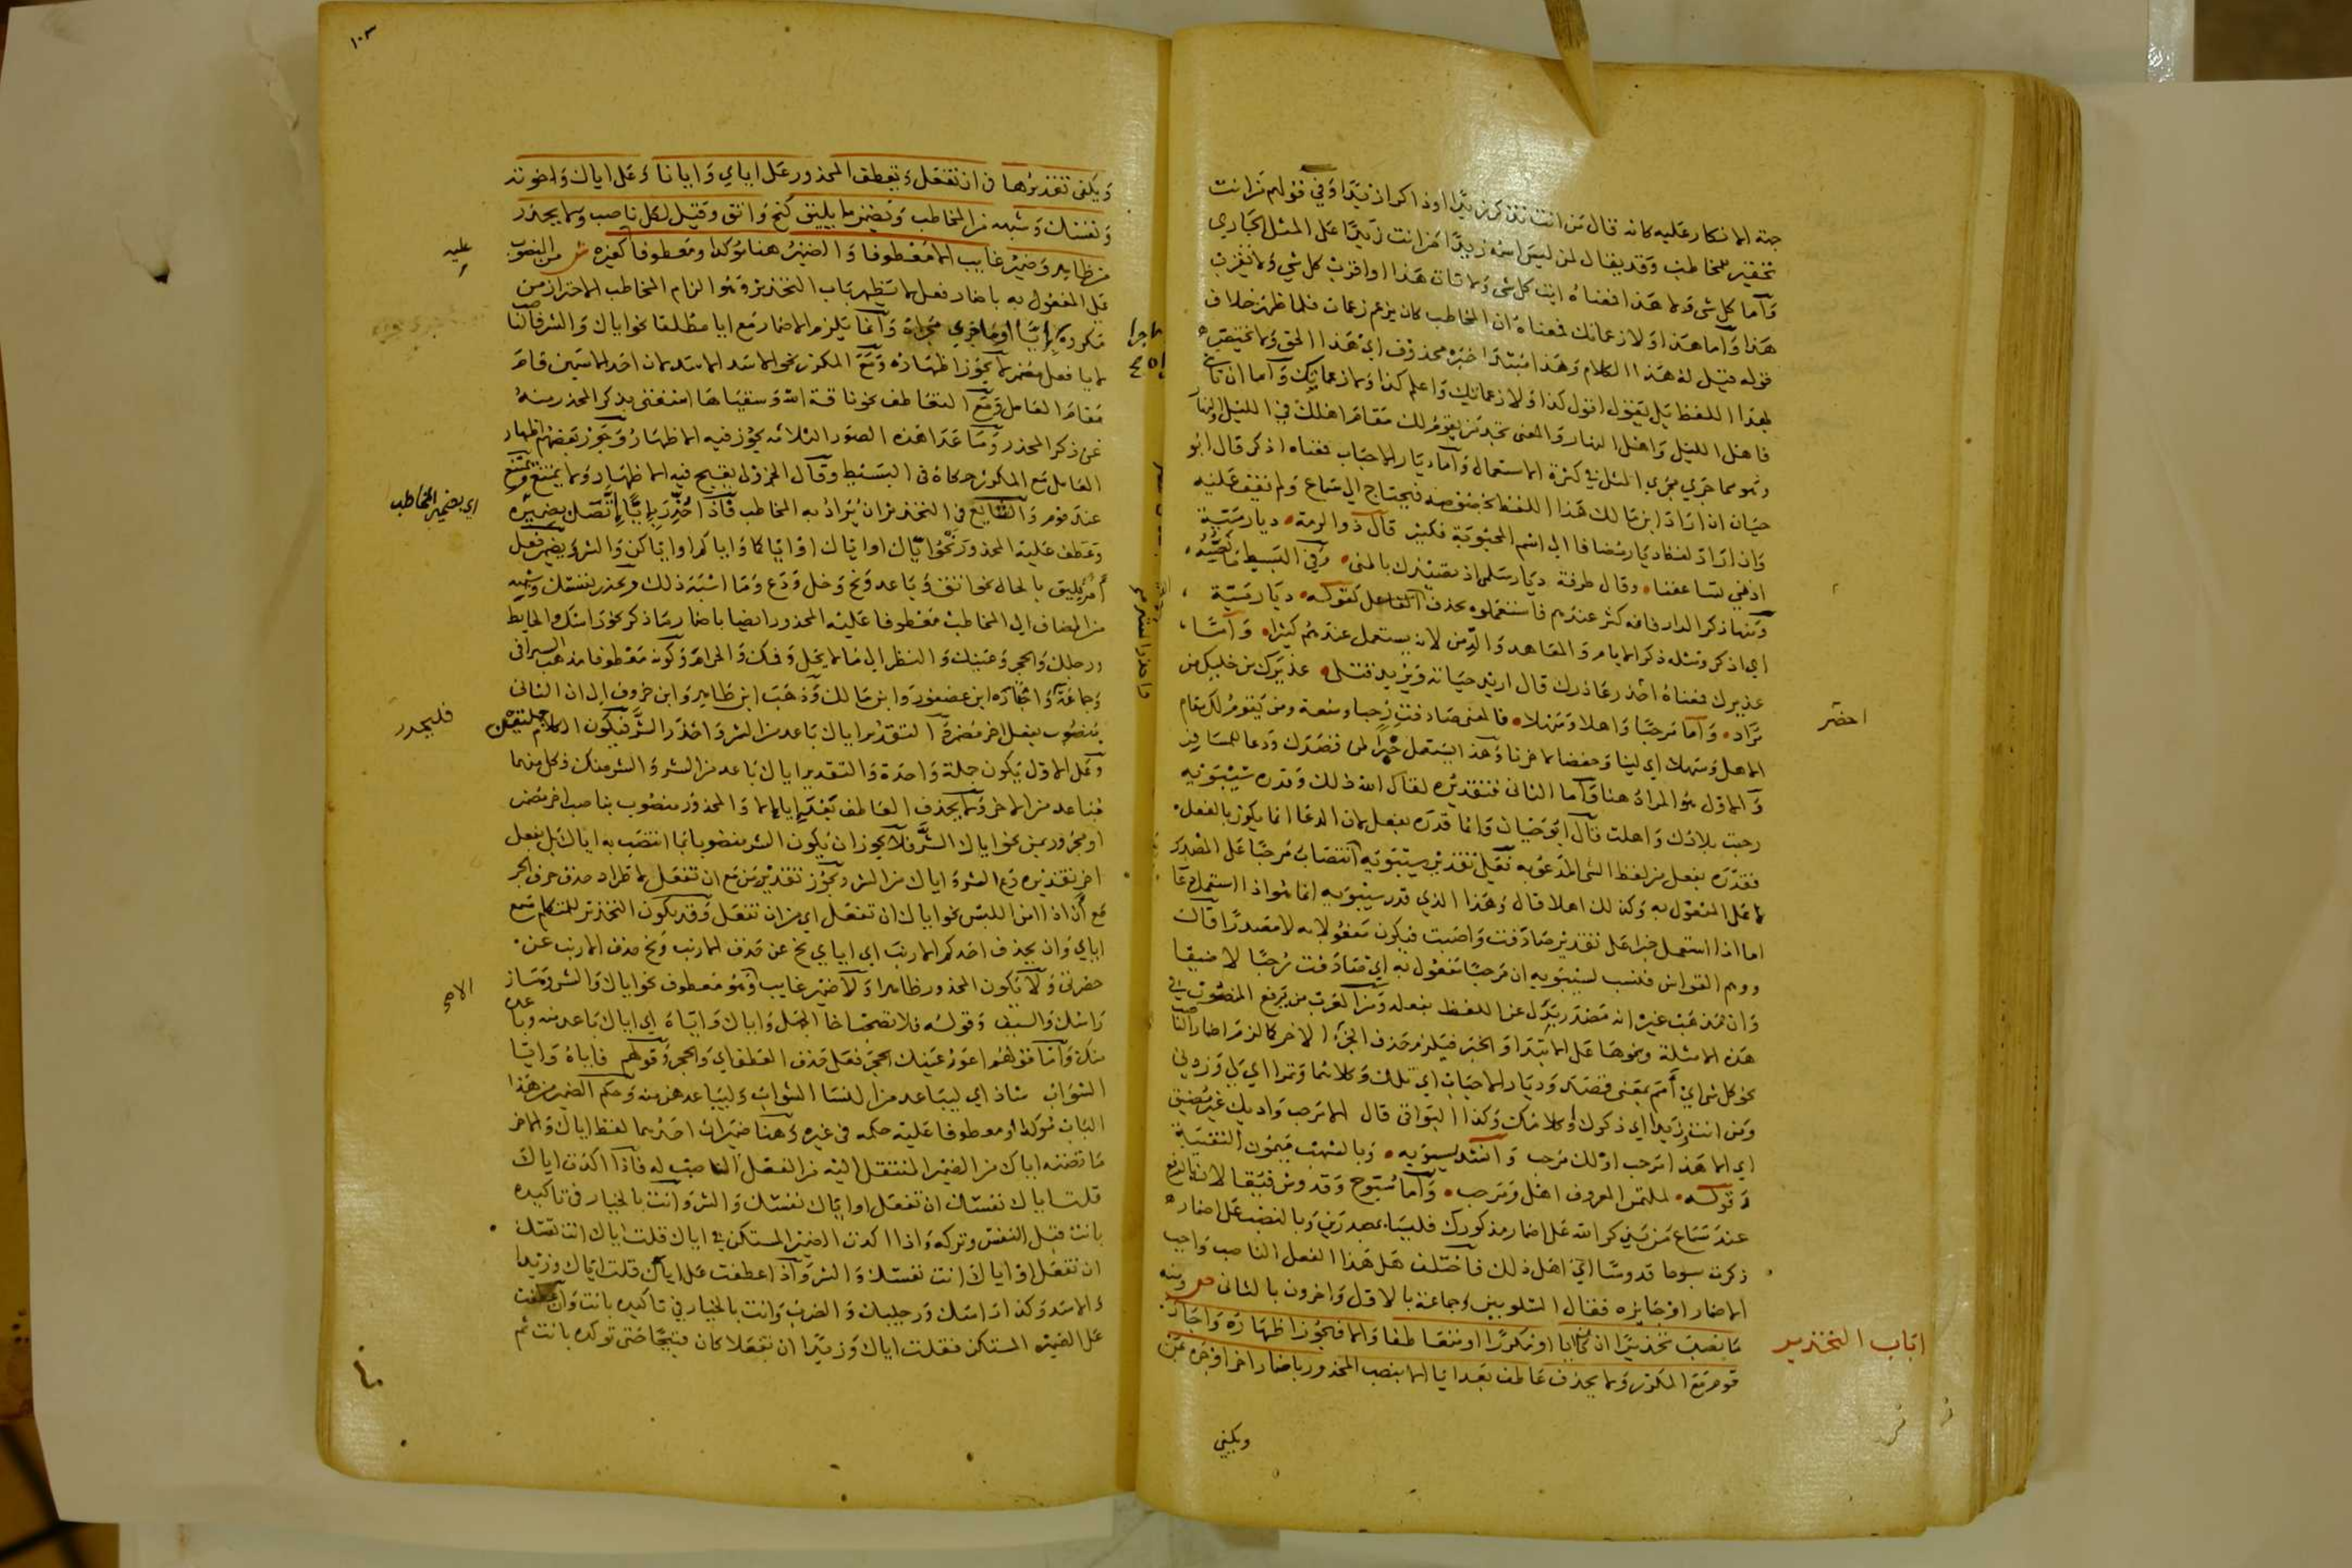 جهة الانكار عليه كانه قال من انت تذكر زيدا او ذاكرا زيدا وفي قولهم من انت
تحقير للمخاطب وقد يقال لمن ليس اسمه زيدا من انت زيدا على المثل الجاري
وأما كل شى ولا هذا فمعناه ايت كل شى ولا تات هذا او اقرب كل شي ولا تقرب
هذا وأما هذا ولا زعماتك فمعناه ان المخاطب كان يزعم زعمات فلما ظهر خلاف
قوله قيل له هذا الكلام وهذا مبتدا خبره محذوف اي هذا الحق ولا
بهذا اللفظ بل يقول اقول كذا ولا زعماتك واعلم كذا ولا زعماتك وأما ان تأت
فاهل الليل واهل النهار والمعنى تجد من يقوم لك مقام اهلك في الليل والنهار
وهو مما جري مجري المثل في كثرة الاستعمال وأما ديار الاحباب فمعناه اذكر قال ابو
حيان ان اراد ابن مالك هذا اللفظ بخصوصه فيحتاج الى سماع ولم نقف عليه
وان اراد لفظ ديار مضافا الى اسم المحبوبة فكثير قال ذو الرمة ديار مية
اذ مي تساعفنا وقال طرفة ديار سلمى اذ تصيدك بالمنى وفي البسيط ما نصه
ومنها ذكر الدار فانه كثر عندهم فاستعملوه بحذف الفاعل كقوله ديار مية
اي اذكر ومثله ذكر الايام والمعاهد والدمن لانه يستعمل عندهم كثيرا وأما
عذيرك فمعناه احضر عاذرك قال اريد حياته ويريد قتلى عذيرك من خليلك من
مراد وأما مرحبا واهلا وسهلا فالمعنى صادفت رحبا وسعة ومن يقوم لك مقام
الاهل وسهلا اي لينا وخفضا لا حزنا وهذا يستعمل خبرا لمن قصدك ودعا للمسافر
والاول هو المراد هنا وأما الثانى فتقديره لقاك الله ذلك وقدره سيبويه
رحبت بلادك واهلت قال ابو حيان وانما قدره بفعل لان الدعا انما يكون بالفعل
فقدره بفعل من لفظ الشى المدعو به فعلى تقدير سيبويه انتصاب مرحبا على المصدر
لا على المفعول به وكذلك اهلا قال وهذا الذي قدر سيبويه انما هو اذا استعمل دعا
اما اذا استعمل خبرا على تقدير صادفت واصبت فيكون مفعولا به لا مصدرا قال
ووهم القواس فنسب لسيبويه ان مرحبا مفعول به اي صادفت رحبا لا ضيقا
وان مذهب غيره انه مصدر بدل من اللفظ بفعله ومن العرب من يرفع المنصوب في
هذه الامثلة ونحوها على الابتدا او الخبر فيلزم حذف الجزء الاخر كما لزم اضمار الناصب
نحو كل شى اي أمم بمعنى قصد وديار الاحباب اي تلك وكلاهما وتمرا اي لى وزدني
ومن انت زيد اي ذكرك او كلامك وكذا البواقى قال الا مرحب واديك غير مضيق
اي الا هذا مرحب او لك مرحب وانشد سيبويه وبالسهب ميمون النقيبة
قوله لملتمس المعروف اهل ومرحب وأما سبوح وقدوس فيقالان بالرفع
عند سماع من يذكر الله على اضمار مذكورك فليسا بمصدرين وبالنصب على اضمار
ذكرت سبوحا قدوسا اي اهل ذلك فاختلف هل هذا الفعل الناصب واجب
الاضمار او جايزه فقال الشلوبين وجماعة بالاول واخرون بالثانى ص ومنه
ما نصب تحذيرا ان كان ايا او مكررا او متعاطفا والا فيجوز اظهاره واجازه
قوم مع المكرر ولا يحذف عاطف بعد ايا الا بنصب المحذور باضمار اخر او جره بمن
ويكفي
احضر
اباب التحذير
١٠٣
ويكفى تقديرها في ان تفعل ويعطف المحذور على اياي وايانا وعلى اياك واخوته
ونفسك وشبهه من المخاطب ويضمر ما يليق كنح واتق وقيل لكل ناصب ولا يحذر
من ظاهر وضمير غايب الا معطوفا والضمير هنا مؤكدا ومعطوفا كغيره ش من المنصوب
على المفعول به باضمار فعل لا يظهر باب التحذير وهو الزام المخاطب الاحتراز من
مكروه بإيا او ما جري مجراه وانما يلزم الاضمار مع ايا مطلقا نحو اياك والشر فالناصب
لايا فعل مضمر لا يجوز اظهاره ومع المكرر نحو الاسد الاسد لان احد الاسمين قام
مقام العامل ومع العاطف نحو ناقة الله وسقياها استغنى بذكر المحذر منه
عن ذكر المحذر وما عدا هذه الصور الثلاثه يجوز فيه الاظهار وجوز بعضهم اظهار
العامل مع المكرر حكاه في البسيط وقال الجزولى يقبح فيه الاظهار ولا يمتنع
عند قوم والشايع في التحذير ان يراد به المخاطب فاذا حذر بإيا إتصل بضميره
وعطف عليه المحذور نحو اياك او اياك او اياكما واياكم او اياكن والشر ويضمر فعل
أمر يليق بالحال نحو اتق وباعد ونح وخل ودع وما اشبه ذلك ويحذر بنفسك وشبهه
من المضاف الى المخاطب معطوفا عليه المحذور ايضا باضمار ما ذكر نحو راسك والحايط
ورجلك والحجر وعينك والنظر الى ما لا يحل وفمك والحرام وكونه معطوفا مذهب السيرافى
وجماعة واختاره ابن عصفور وابن مالك وذهب ابن طاهر وابن خروف الى ان الثانى
منصوب بفعل اخر مضمر والتقدير اياك باعد من الشر واحذر الشر فيكون الكلام جملتين
وعلى الاول يكون جملة واحدة والتقدير اياك باعد من الشر والشر منك فكل منهما
مباعد من الاخر ولا يحذف العاطف بعد ايا الا والمحذور منصوب بناصب اخر مضمر
او مجرور بمن نحو اياك الشر فلا يجوز ان يكون الشر منصوبا بما انتصب به اياك بل بفعل
اخر تقديره دع الشر واياك من الشر ويجوز تقدير من مع ان تفعل لاطراد حذف حرف الجر
مع أن اذا امن اللبس نحو اياك ان تفعل اي من ان تفعل وقد يكون التحذير للمتكلم سمع
اياي وان يحذف احدكم الارنب اي اياي نح عن حذف الارنب ونح حذف الارنب عن
حضرتى ولا يكون المحذور ظاهرا ولا ضمير غايب الا وهو معطوف نحو اياك والشر وماز
راسك والسيف وقوله فلا تصحب اخا الجهل واياك واياه اي اياك باعد منه وباعده
منك وأما قولهم اعور عينك الحجر فعلى حذف العاطف اي والحجر وقولهم فاياه وايا
الشواب شاذ اي ليباعد من النسا الشواب وليباعدهن منه وحكم الضمير من هذا
الباب مؤكدا او معطوفا عليه حكمه في غيره وهنا ضميران احدهما لفظ اياك والاخر
ما تضمنه اياك من الضمير المنتقل اليه من الفعل الناصب له فاذا اكدت اياك
قلت اياك نفسك ان تفعل او اياك نفسك والشر وانت بالخيار في تاكيده
بانت قبل النفس وتركه واذا اكدت الضمير المستكن في اياك قلت اياك انت نفسك
ان تفعل او اياك انت نفسك والشر واذا عطفت على اياك قلت اياك وزيدا
والاسد وكذا راسك ورجليك والضرب وانت بالخيار في تاكيده بانت وان عطفت
على الضمير المستكن فقلت اياك وزيد ان تفعلا كان قبيحا حتى توكده بانت ثم
عليه
اي بضمير المخاطب
فليحذر